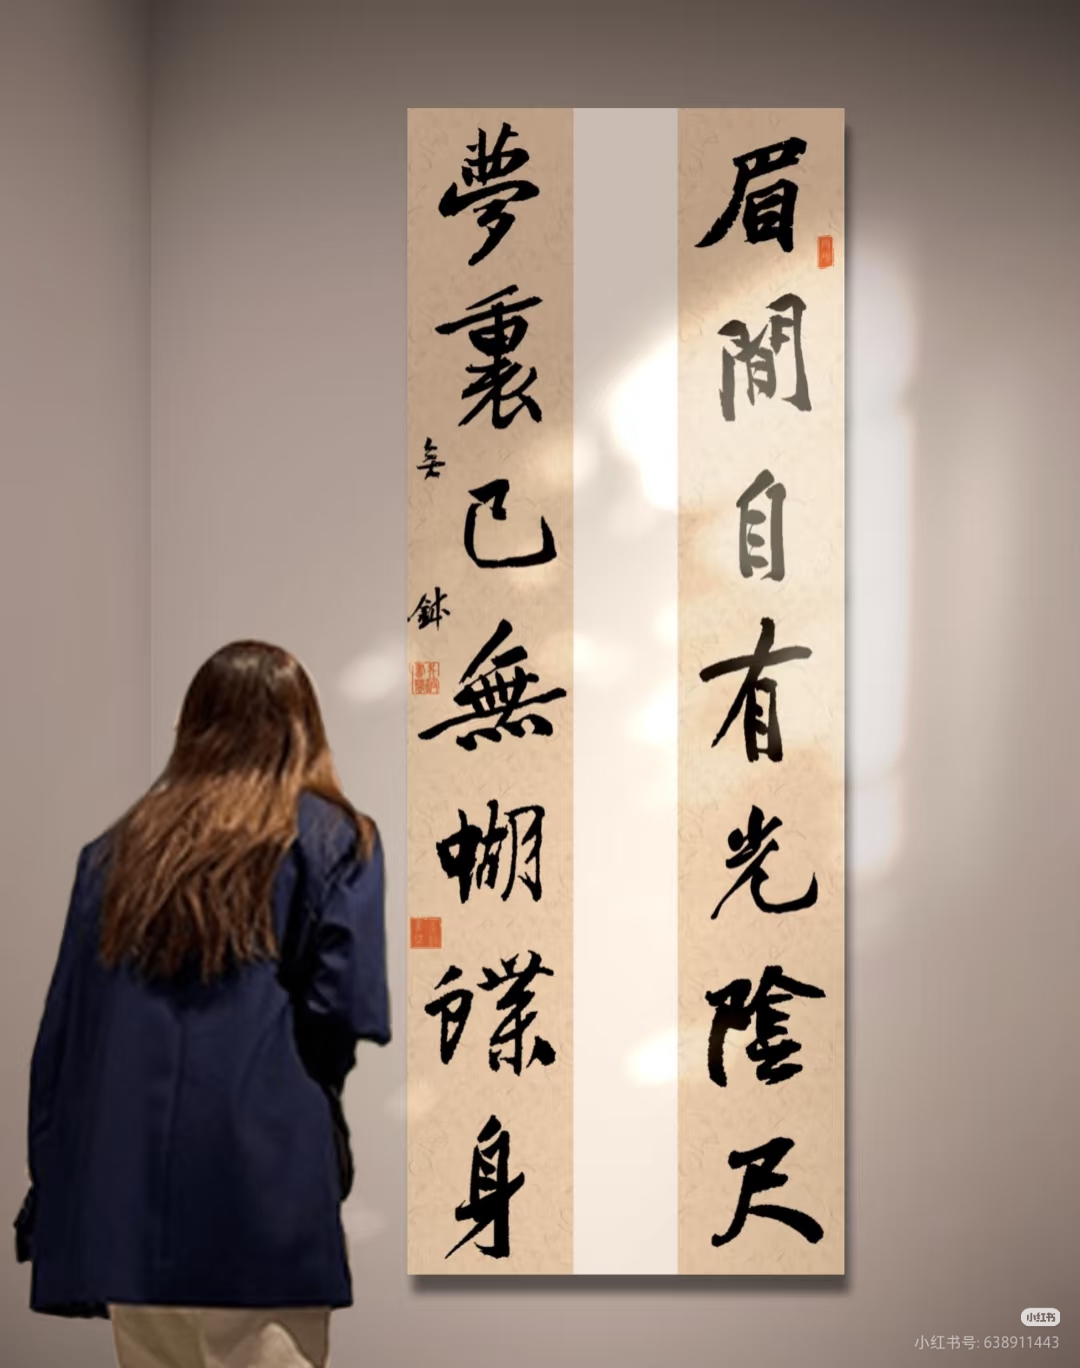 眉間自有光陰尺
夢裏已無蝴蝶身
無鉢
小红书
小红书号: 638911443